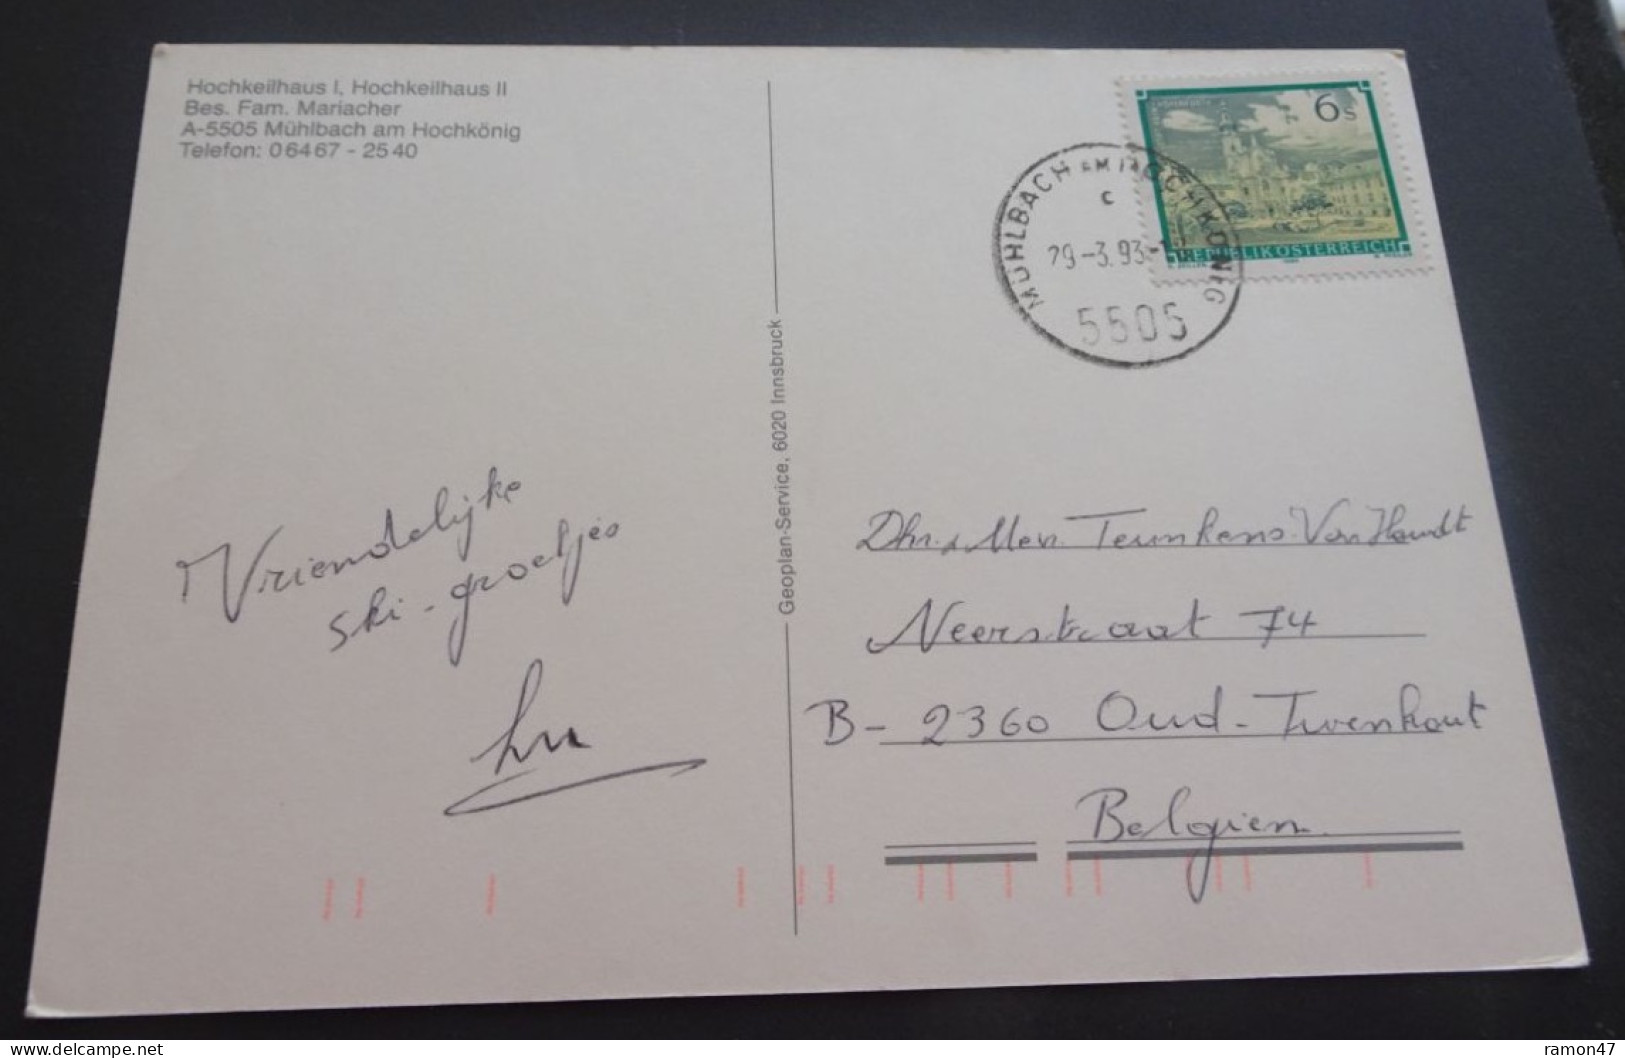 Hochkeilhaus I, Hochkeilhaus II
Bes. Fam. Mariacher
A-5505 Mühlbach am Hochkönig
Telefon: 06467 - 2540
6s
REPUBLIK ÖSTERREICH
MÜHLBACH AM HOCHKÖNIG
c
29-3.93-
5505
Geoplan-Service, 6020 Innsbruck
Vriendelijke
ski-groetjes
Dhr. & Mev. Teunkens-Van
Neerstraat 74
B- 2360 Oud-Turnhout
Belgien
delcampe.net
ramon47